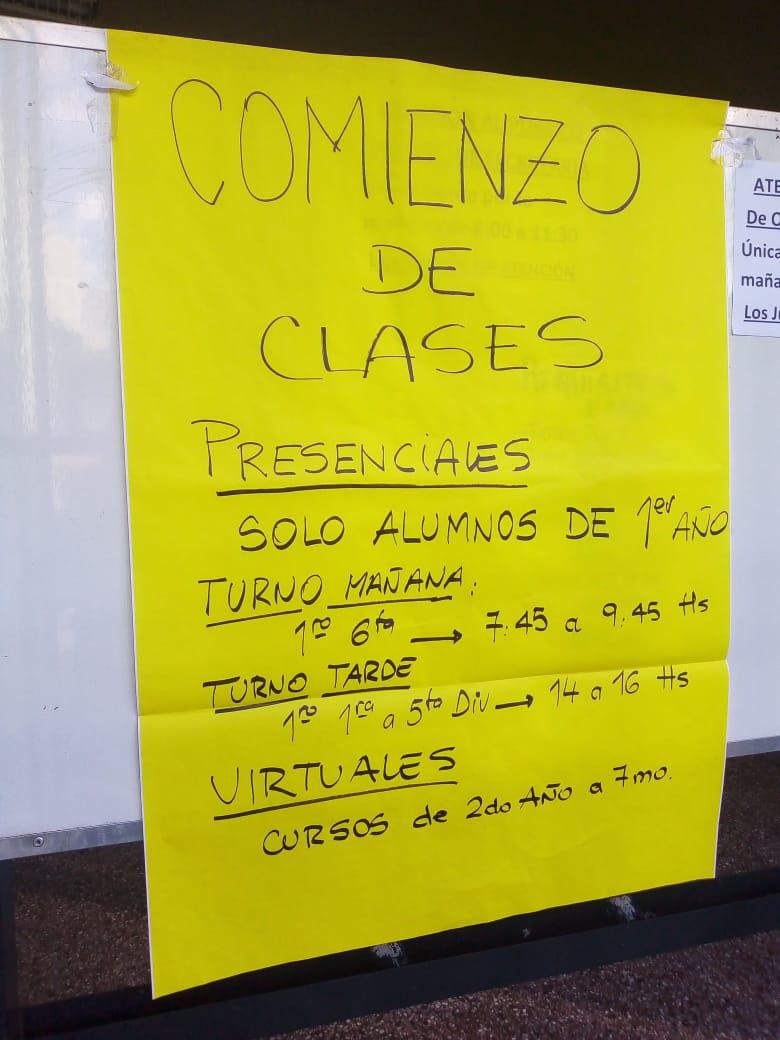 COMIENZO
DE
CLASES
PRESENCIALES
SOLO ALUMNOS DE 1er AÑO
TURNO MAÑANA:
1ro 6ta → 7:45 a 9:45 Hs
TURNO TARDE
1ro 1ra a 5to Div → 14 a 16 Hs
VIRTUALES
CURSOS de 2do AÑO a 7mo.
ATE
De O
Única
maña
Los J